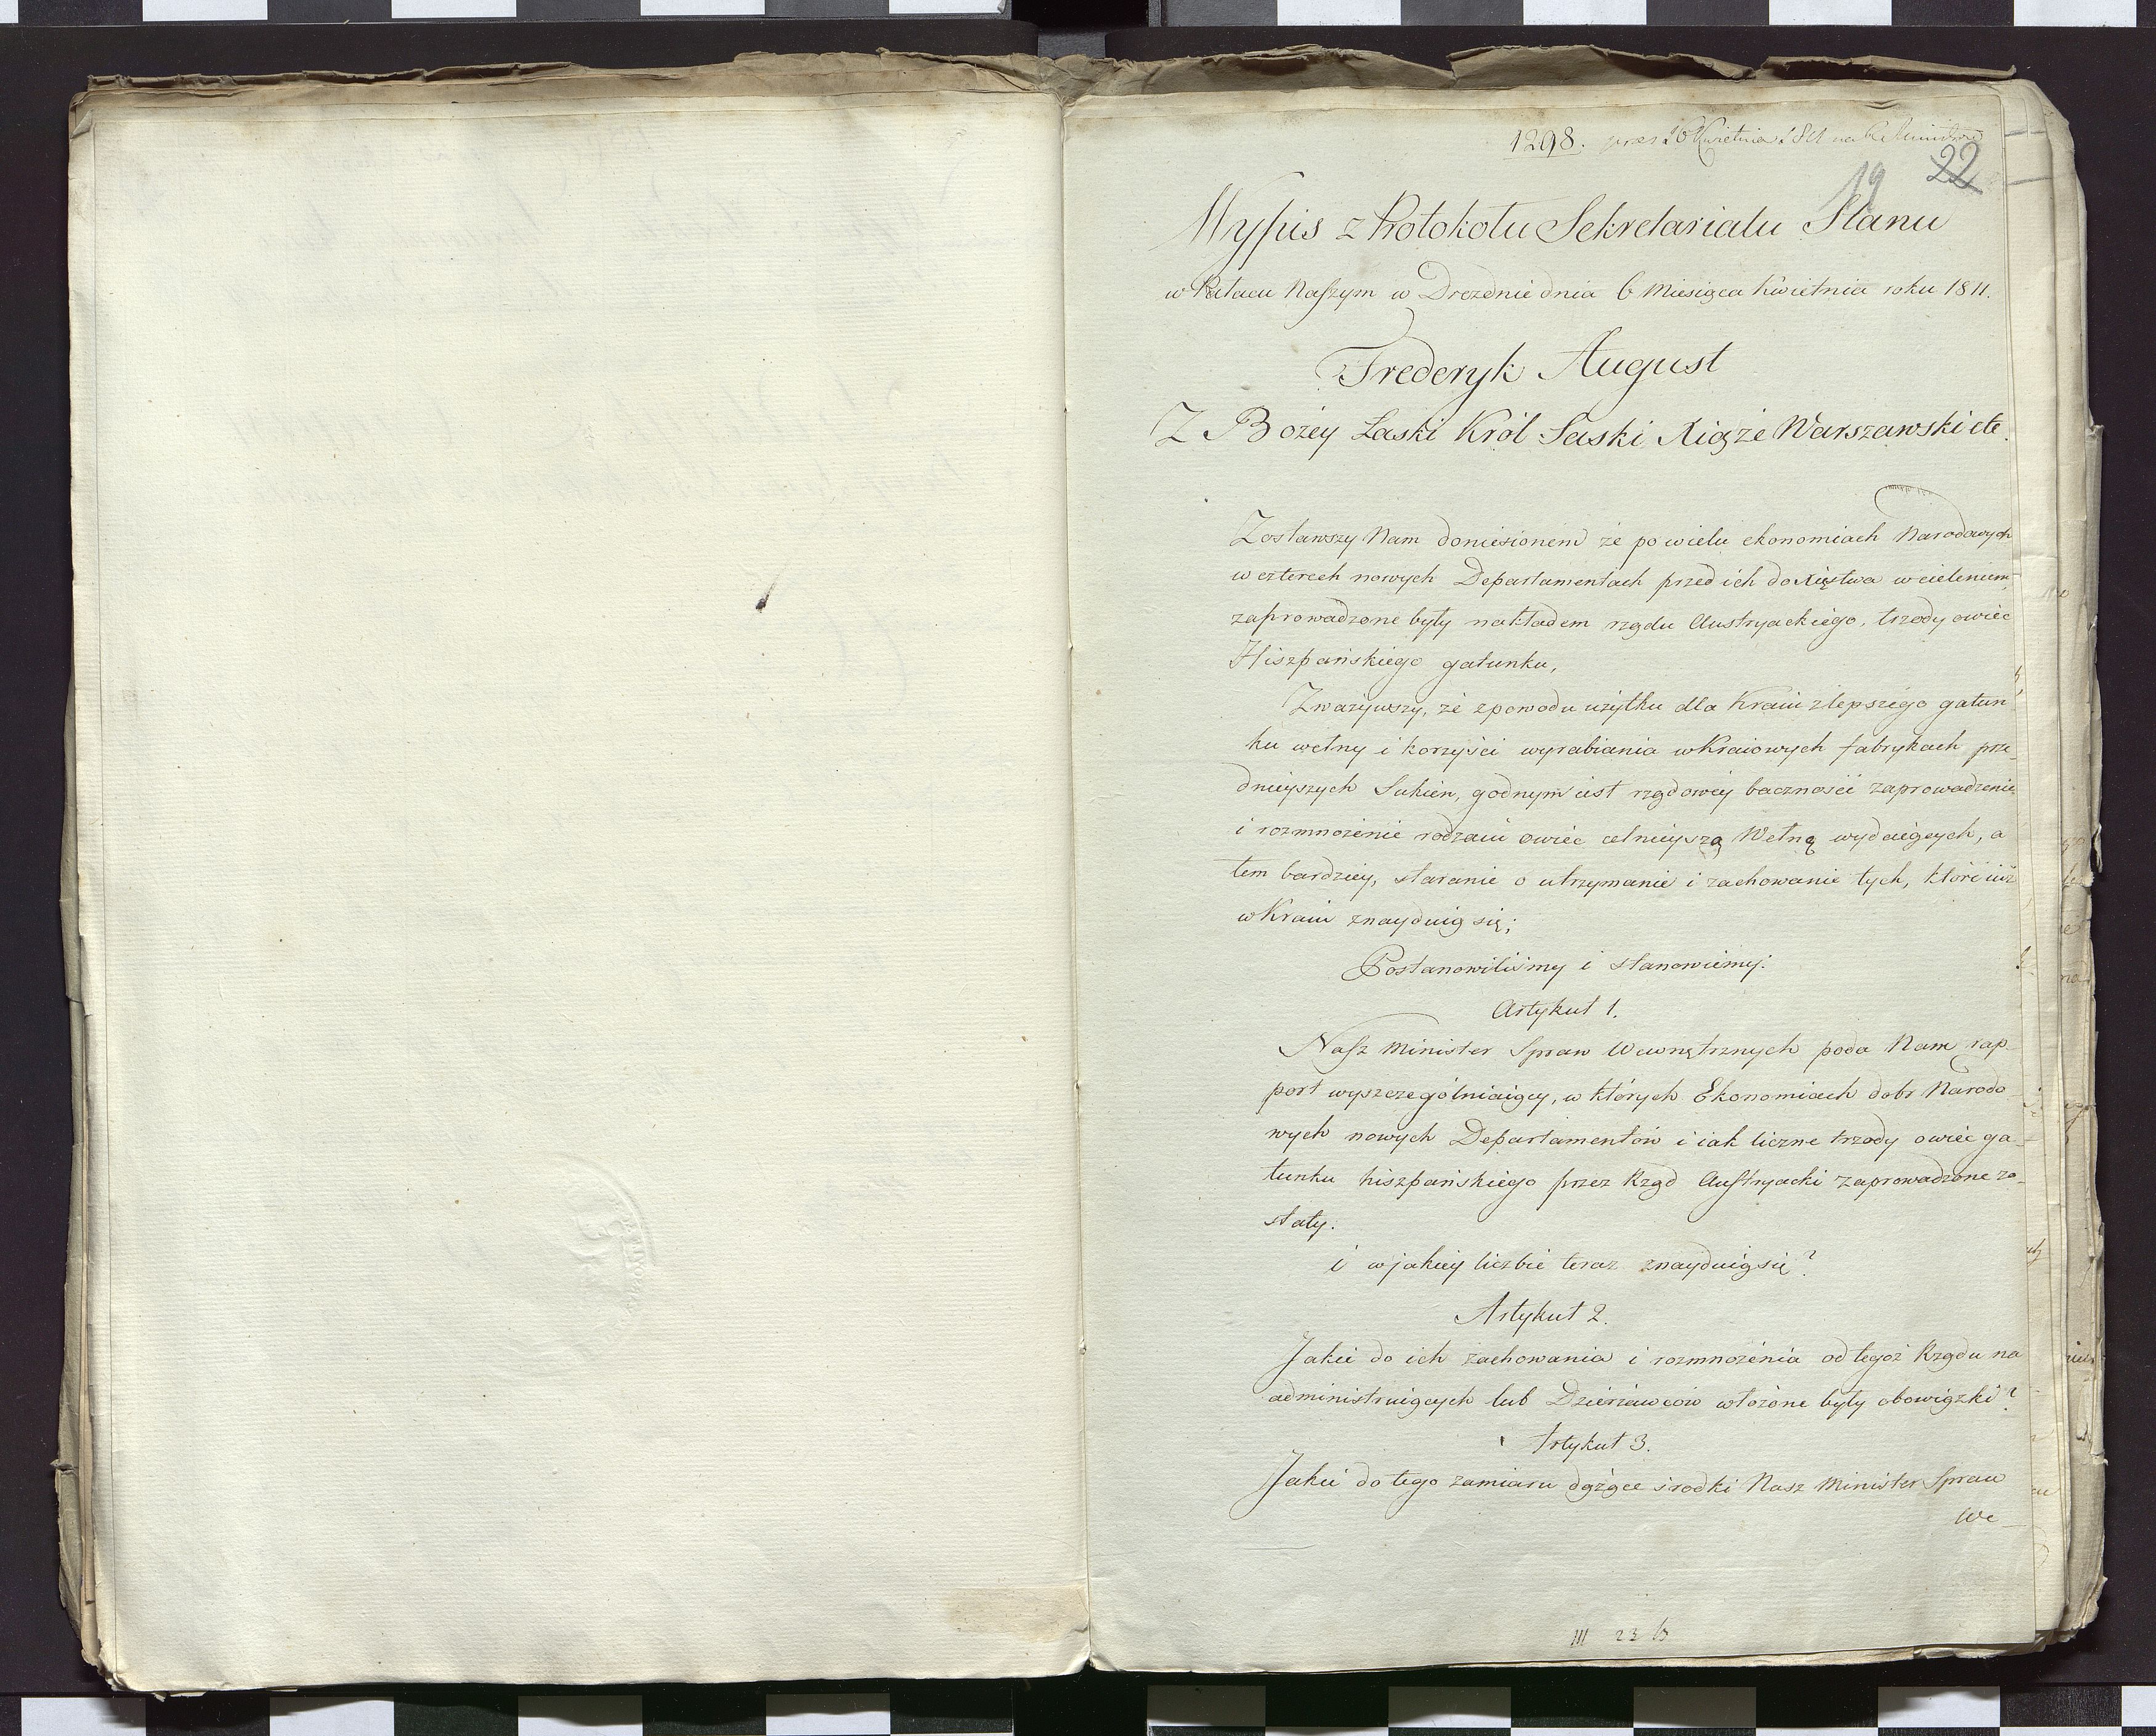 1298. prez 10 Kwietnia 1811 na R. Ministrów
19 22
Wypis z Protokołu Sekretariatu Stanu
w Pałacu Naszym w Dreznie dnia 6 Miesiąca Kwietnia roku 1811.
Frederyk August
Z Bożey Łaski Król Saski Xiąże Warszawski etc.
Zostawszy Nam doniesionem że po wielu ekonomiach Narodowych
w czterech nowych Departamentach przed ich do Xięstwa wcieleniem,
zaprowadzone były nakładem rządu Austryackiego, trzody owiec
Hiszpańskiego gatunku,
Zważywszy, że z powodu użytku dla Kraiu z lepszego gatun
ku wełny i korzyści wyrabiania w Kraiowych fabrykach prze-
dnieyszych Sukien, godnym iest rządowey baczności zaprowadzenie
i rozmnożenie rodzaiu owiec celnieyszą Wełnę wydaiących, a
tem bardziey, staranie o utrzymanie i zachowanie tych, które iuż
w Kraiu znayduią się;
Postanowiliśmy i stanowiemy:
Artykuł 1.
Nasz Minister Spraw Wewnętrznych poda Nam rap-
port wyszczególniaiący, w których Ekonomiach dobr Narodo-
wych nowych Departamentów i iak liczne trzody owiec ga-
tunku hiszpańskiego przez Rząd Austryacki zaprowadzone zo-
stały.
i w jakiey liczbie teraz znayduią się?
Artykuł 2.
Jakie do ich zachowania i rozmnożenia od tegoż Rządu na
administruiących lub Dzierżawców włożone były obowiązki?
Artykuł 3.
Jakie do tego zamiaru dążące srodki Nasz Minister Spraw
We-
III 23 b